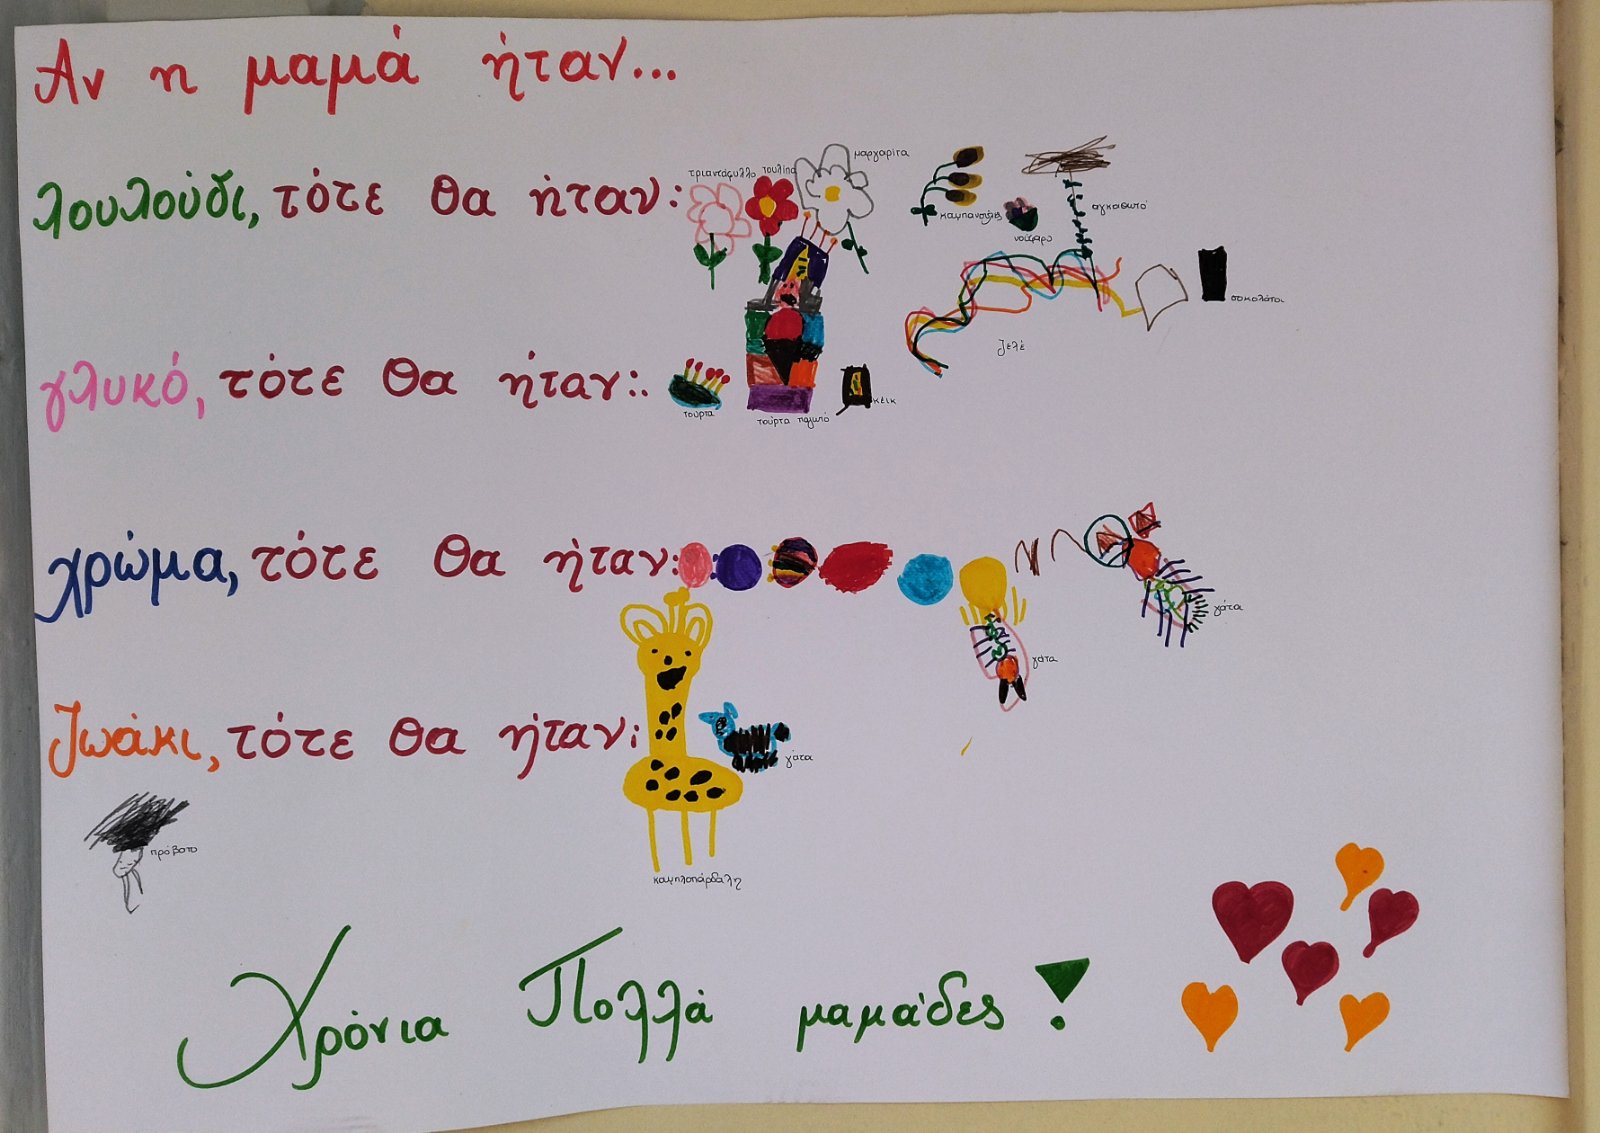 Αν η μαμά ήταν...
μαργαρίτα
τριαντάφυλλο τουλίπα
λουλούδι, τότε θα ήταν:
καμπανούλες
αγκαθωτό
νούφαρο
σοκολάτα
ζελέ
γλυκό, τότε θα ήταν:.
κέικ
τούρτα
τούρτα
χρώμα, τότε θα ήταν:
γάτα
γάτα
ζωάκι, τότε θα ήταν:
γάτα
πρόβατο
καμηλοπάρδαλη
Χρόνια Πολλά μαμάδες!